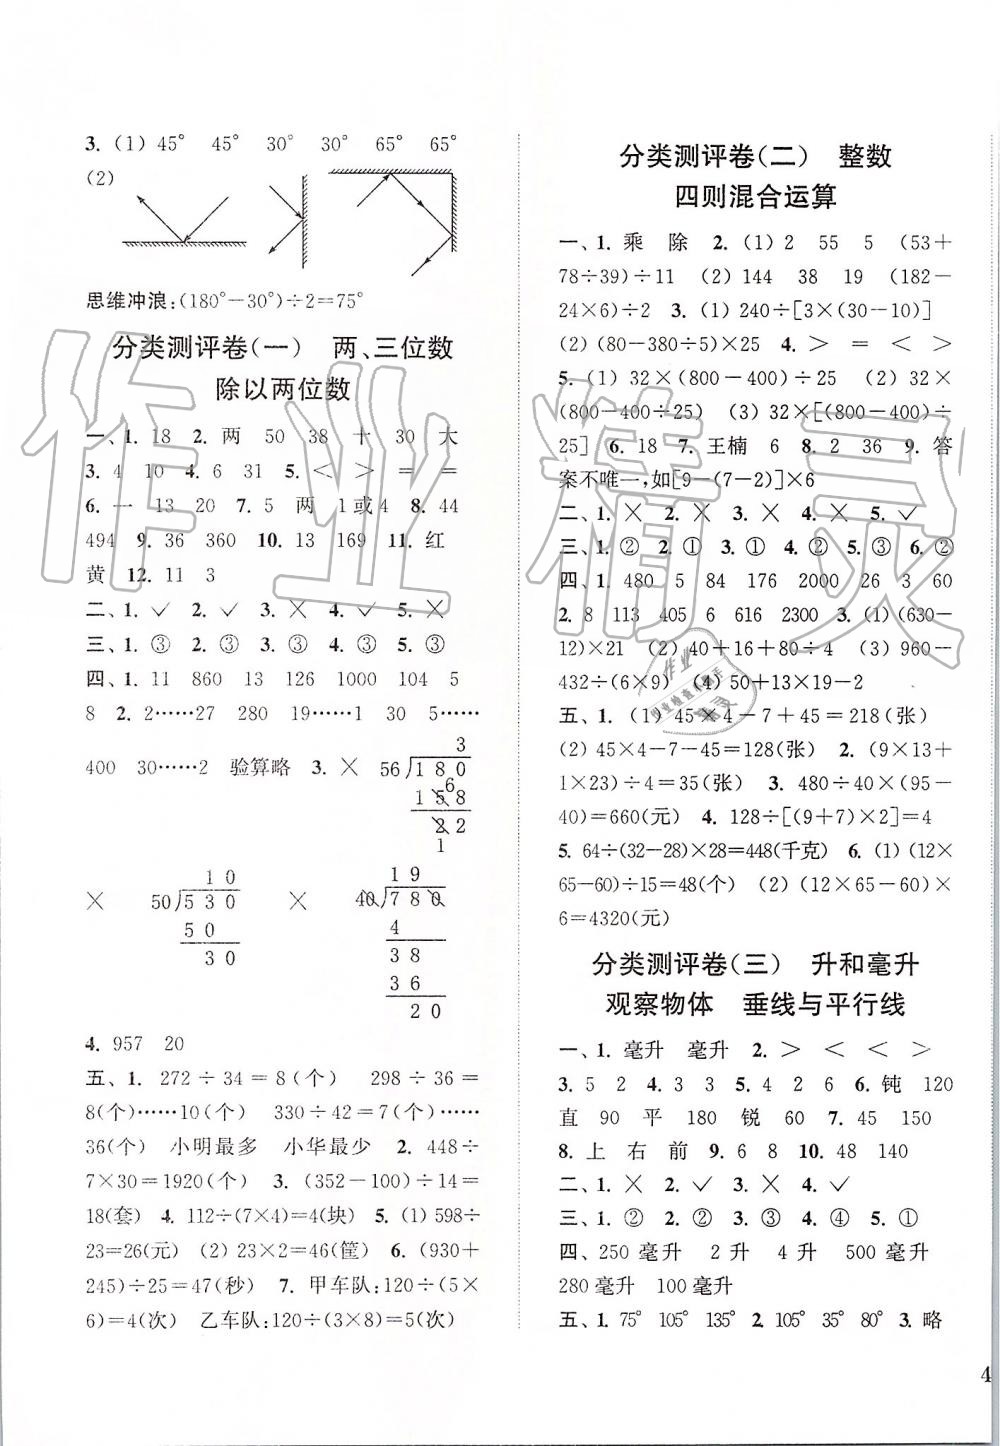 3. (1) 45° 45° 30° 30° 65° 65°
(2)
思维冲浪:(180°-30°)÷2=75°
分类测评卷(一) 两、三位数
除以两位数
一、1. 18 2. 两 50 38 十 30 大
3. 4 10 4. 6 31 5. < > = =
6. 一 13 20 7. 5 两 1或4 8. 44
494 9. 36 360 10. 13 169 11. 红
黄 12. 11 3
二、1. ✓ 2. ✓ 3. × 4. ✓ 5. ×
三、1. ③ 2. ③ 3. ③ 4. ③ 5. ③
四、1. 11 860 13 126 1000 104 5
8 2. 2……27 280 19……1 30 5……
400 30……2 验算略 3. ×
3
56 180
6
158
22
1
×
10
50 530
50
30
×
19
40 780
4
38
36
20
4. 957 20
五、1. 272÷34=8(个) 298÷36=
8(个)……10(个) 330÷42=7(个)……
36(个) 小明最多 小华最少 2. 448÷
7×30=1920(个) 3. (352-100)÷14=
18(套) 4. 112÷(7×4)=4(块) 5. (1) 598÷
23=26(元) (2) 23×2=46(筐) 6. (930+
245)÷25=47(秒) 7. 甲车队:120÷(5×
6)=4(次) 乙车队:120÷(3×8)=5(次)
分类测评卷(二) 整数
四则混合运算
一、1. 乘 除 2. (1) 2 55 5 (53+
78÷39)÷11 (2) 144 38 19 (182-
24×6)÷2 3. (1) 240÷[3×(30-10)]
(2) (80-380÷5)×25 4. > = < >
5. (1) 32×(800-400)÷25 (2) 32×
(800-400÷25) (3) 32×[(800-400)÷
25] 6. 18 7. 王楠 6 8. 2 36 9. 答
案不唯一,如[9-(7-2)]×6
二、1. × 2. × 3. × 4. × 5. ✓
三、1. ② 2. ① 3. ① 4. ② 5. ③ 6. ②
四、1. 480 5 84 176 2000 26 3 60
2. 8 113 405 6 616 2300 3. (1) (630-
12)×21 (2) 40+16+80÷4 (3) 960-
432÷(6×9) (4) 50+13×15-2
五、1. (1) 45×4-7+45=218(张)
(2) 45×4-7-45=128(张) 2. (9×13+
1×23)÷4=35(张) 3. 480÷40×(95-
40)=660(元) 4. 128÷[(9+7)×2]=4
5. 64÷(32-28)×28=448(千克) 6. (1) (12×
65-60)÷15=48(个) (2) (12×65-60)×
6=4320(元)
分类测评卷(三) 升和毫升
观察物体 垂线与平行线
一、1. 毫升 毫升 2. > < < >
3. 5 2 4. 3 3 5. 4 2 6 6. 钝 120
直 90 平 180 锐 60 7. 45 150
8. 上 右 前 9. 6 8 10. 48 140
二、1. × 2. ✓ 3. × 4. ✓
三、1. ② 2. ② 3. ③ 4. ④ 5. ①
四、250毫升 2升 4升 500毫升
280毫升 100毫升
五、1. 75° 105° 135° 2. 105° 35° 80° 3. 略
4
作业精灵